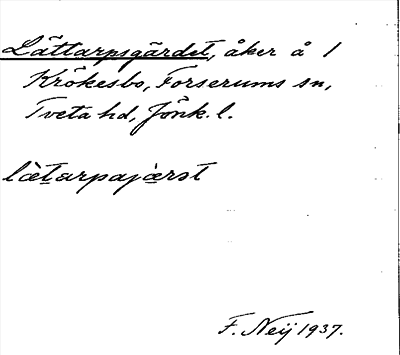 Lättarpsgärdet, åker å 1
Krökesbo, Forserums sn,
Tveta hd, Jönk. l.
lætarpajærst
F. Neij 1937.